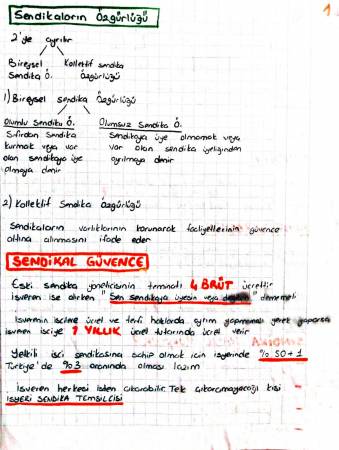 1
Sendikaların Özgürlüğü
2'ye ayrılır
Bireysel Kollektif sendika
Sendika Ö. Özgürlüğü
1) Bireysel sendika Özgürlüğü
Olumlu Sendika Ö. Olumsuz Sendika Ö.
Sıfırdan Sendika Sendikaya üye olmamak veya
kurmak veya var var olan sendika üyeliğinden
olan sendikaya üye ayrılmaya denir
olmaya denir
2) Kollektif Sendika Özgürlüğü
Sendikaların varlıklarının korunarak faaliyellerinin güvence
altına alınmasını ifade eder
SENDİKAL GÜVENCE
Eski sendika yöneticisinin teminatı 4 BRÜT ücrettir
İşveren işe alırken "Sen sendikaya üyesin veya" dememeli
İşverenin işcilere ücret ve terfi haklarda ayrım yapmamalı şayet yaparsa
işveren işciye 1 YILLIK ücret tutarında ücret verir
Yetkili işci sendikasına sahip olmak için işyerinde % 50+1
Türkiye'de %3 oranında olması lazım
İşveren herkesi işten çıkarabilir. Tek çıkaramayacağı kişi
İŞYERİ SENDİKA TEMSİLCİSİ